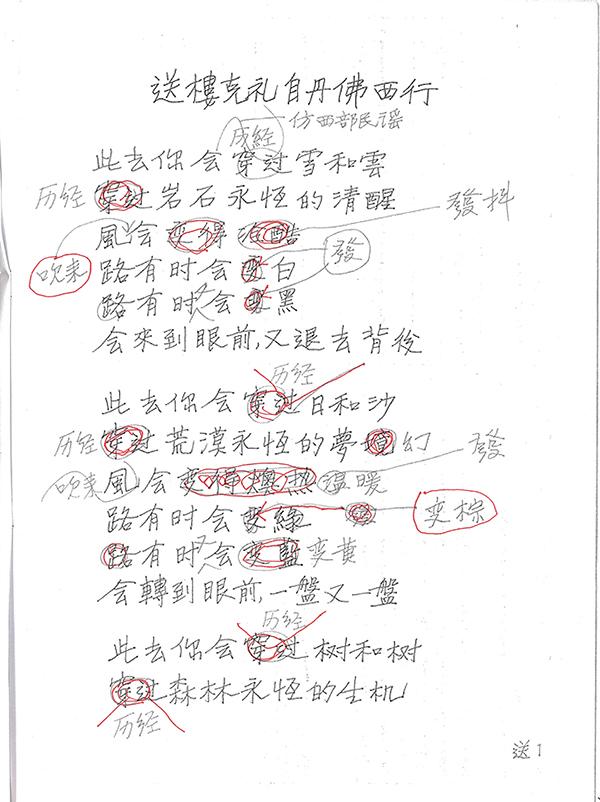 送樓克礼自丹佛西行
仿西部民谣
成经
此去你会穿过雪和雲
历经 穿过岩石永恆的清醒
發抖
風会变得冷酷
發
吹来 路有时会变白
路有时又会变黑
会來到眼前,又退去背後
历经
此去你会穿过日和沙
历经 穿过荒漠永恆的夢境幻
發
吹来 風会变得燠热 温暖
路有时会变綠 变棕
路有时又会变藍变黄
会轉到眼前,一盤又一盤
历经
此去你会穿过树和树
穿过森林永恆的生机
历经
送1